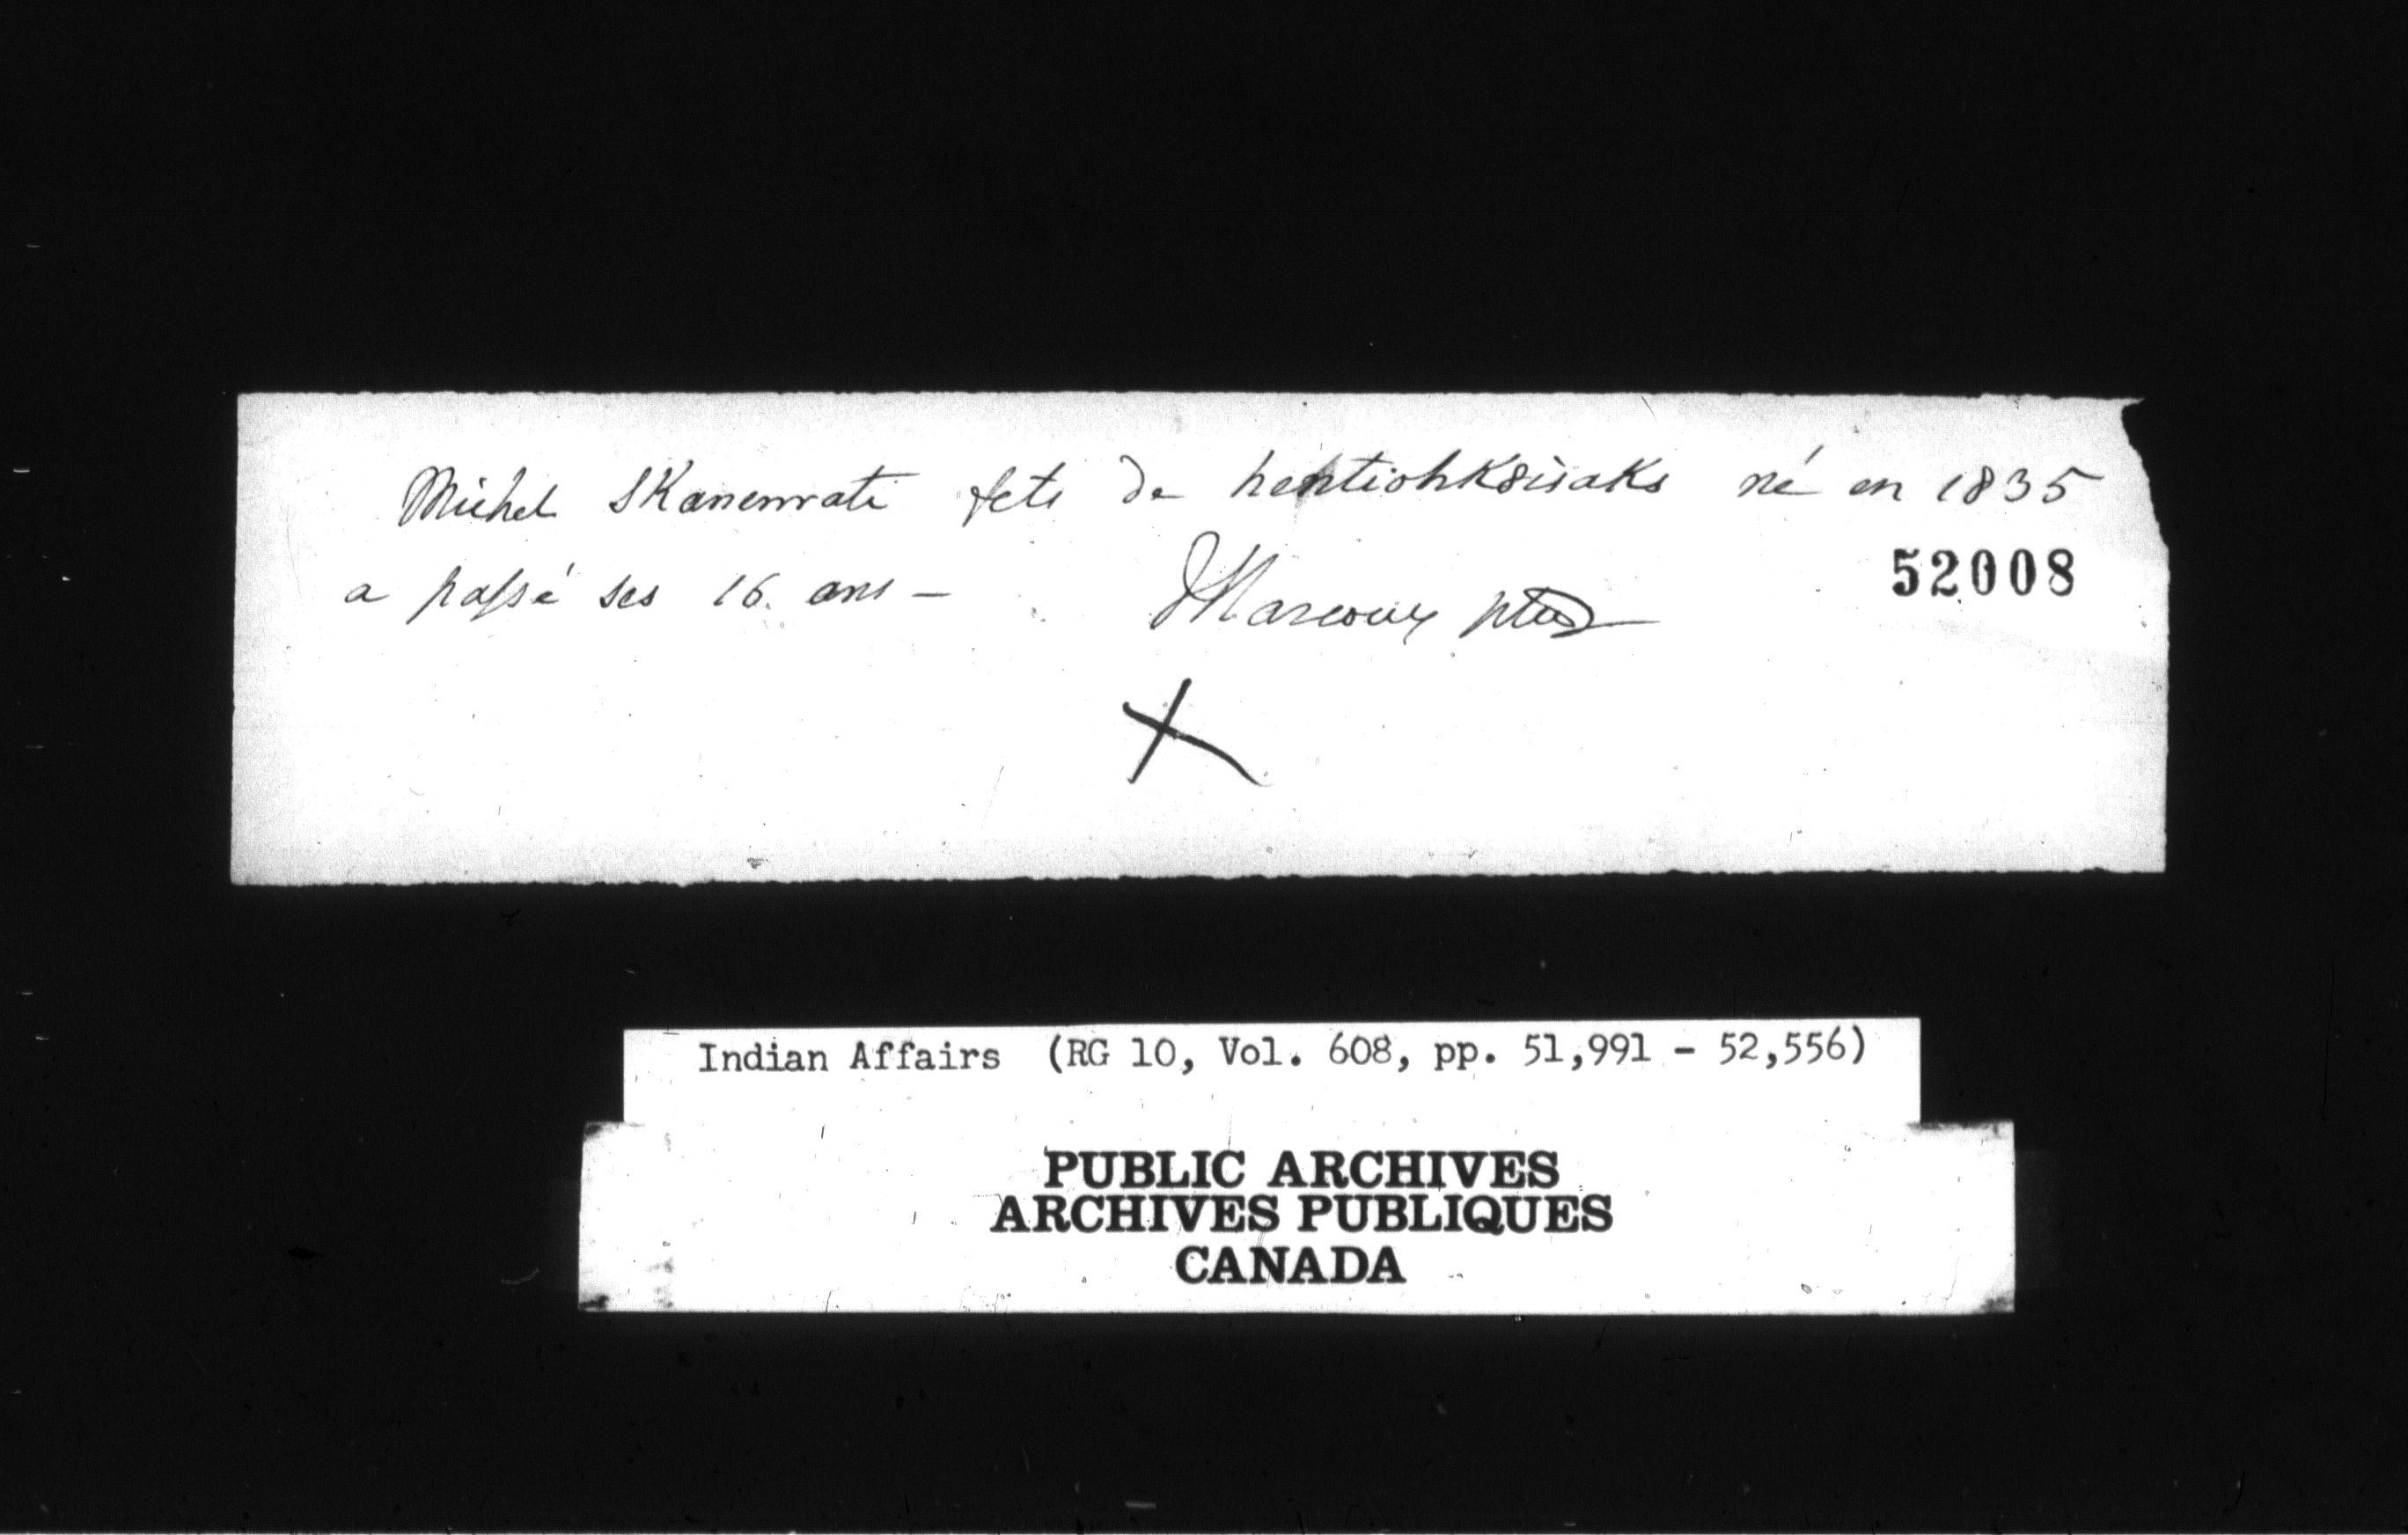 Michel SKanenrati fils de hentiohk8isaks né en 1835
a passé ses 16 ans – JMarcoux ptre
52008
X
Indian Affairs (RG 10, Vol. 608, pp. 51,991 - 52,556)
PUBLIC ARCHIVES
ARCHIVES PUBLIQUES
CANADA